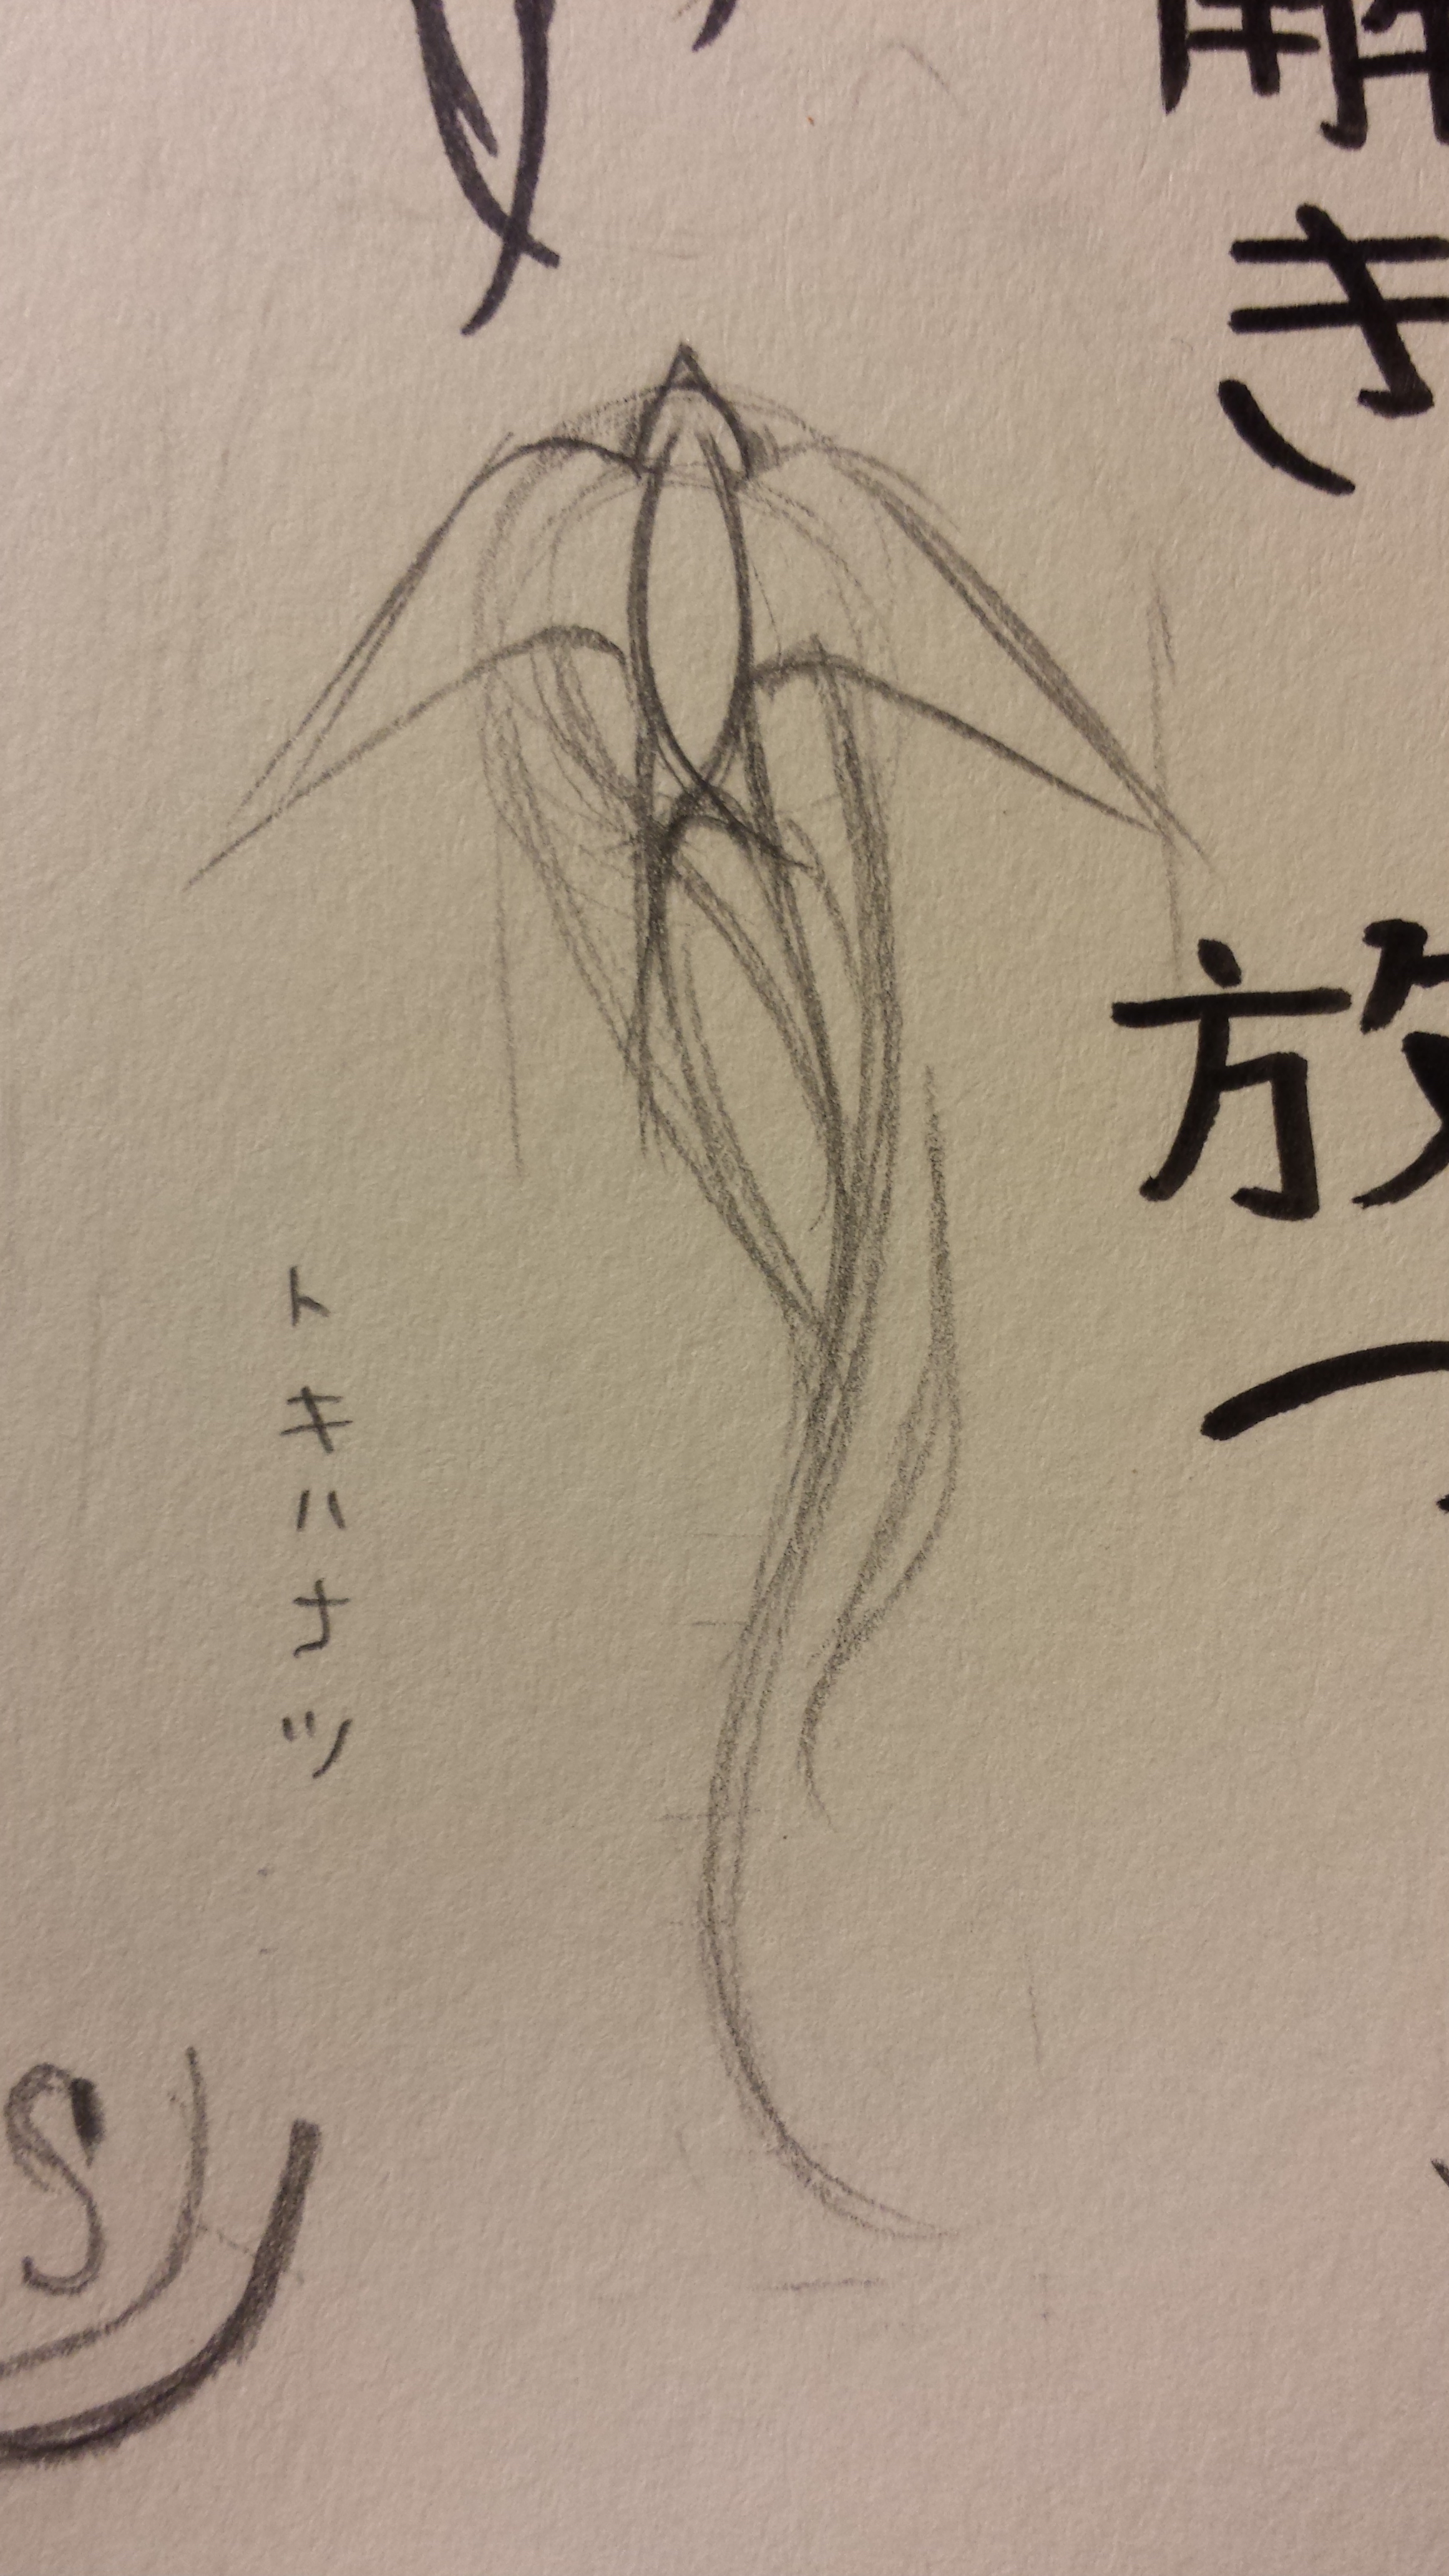 解き放つ
トキハナツ
S